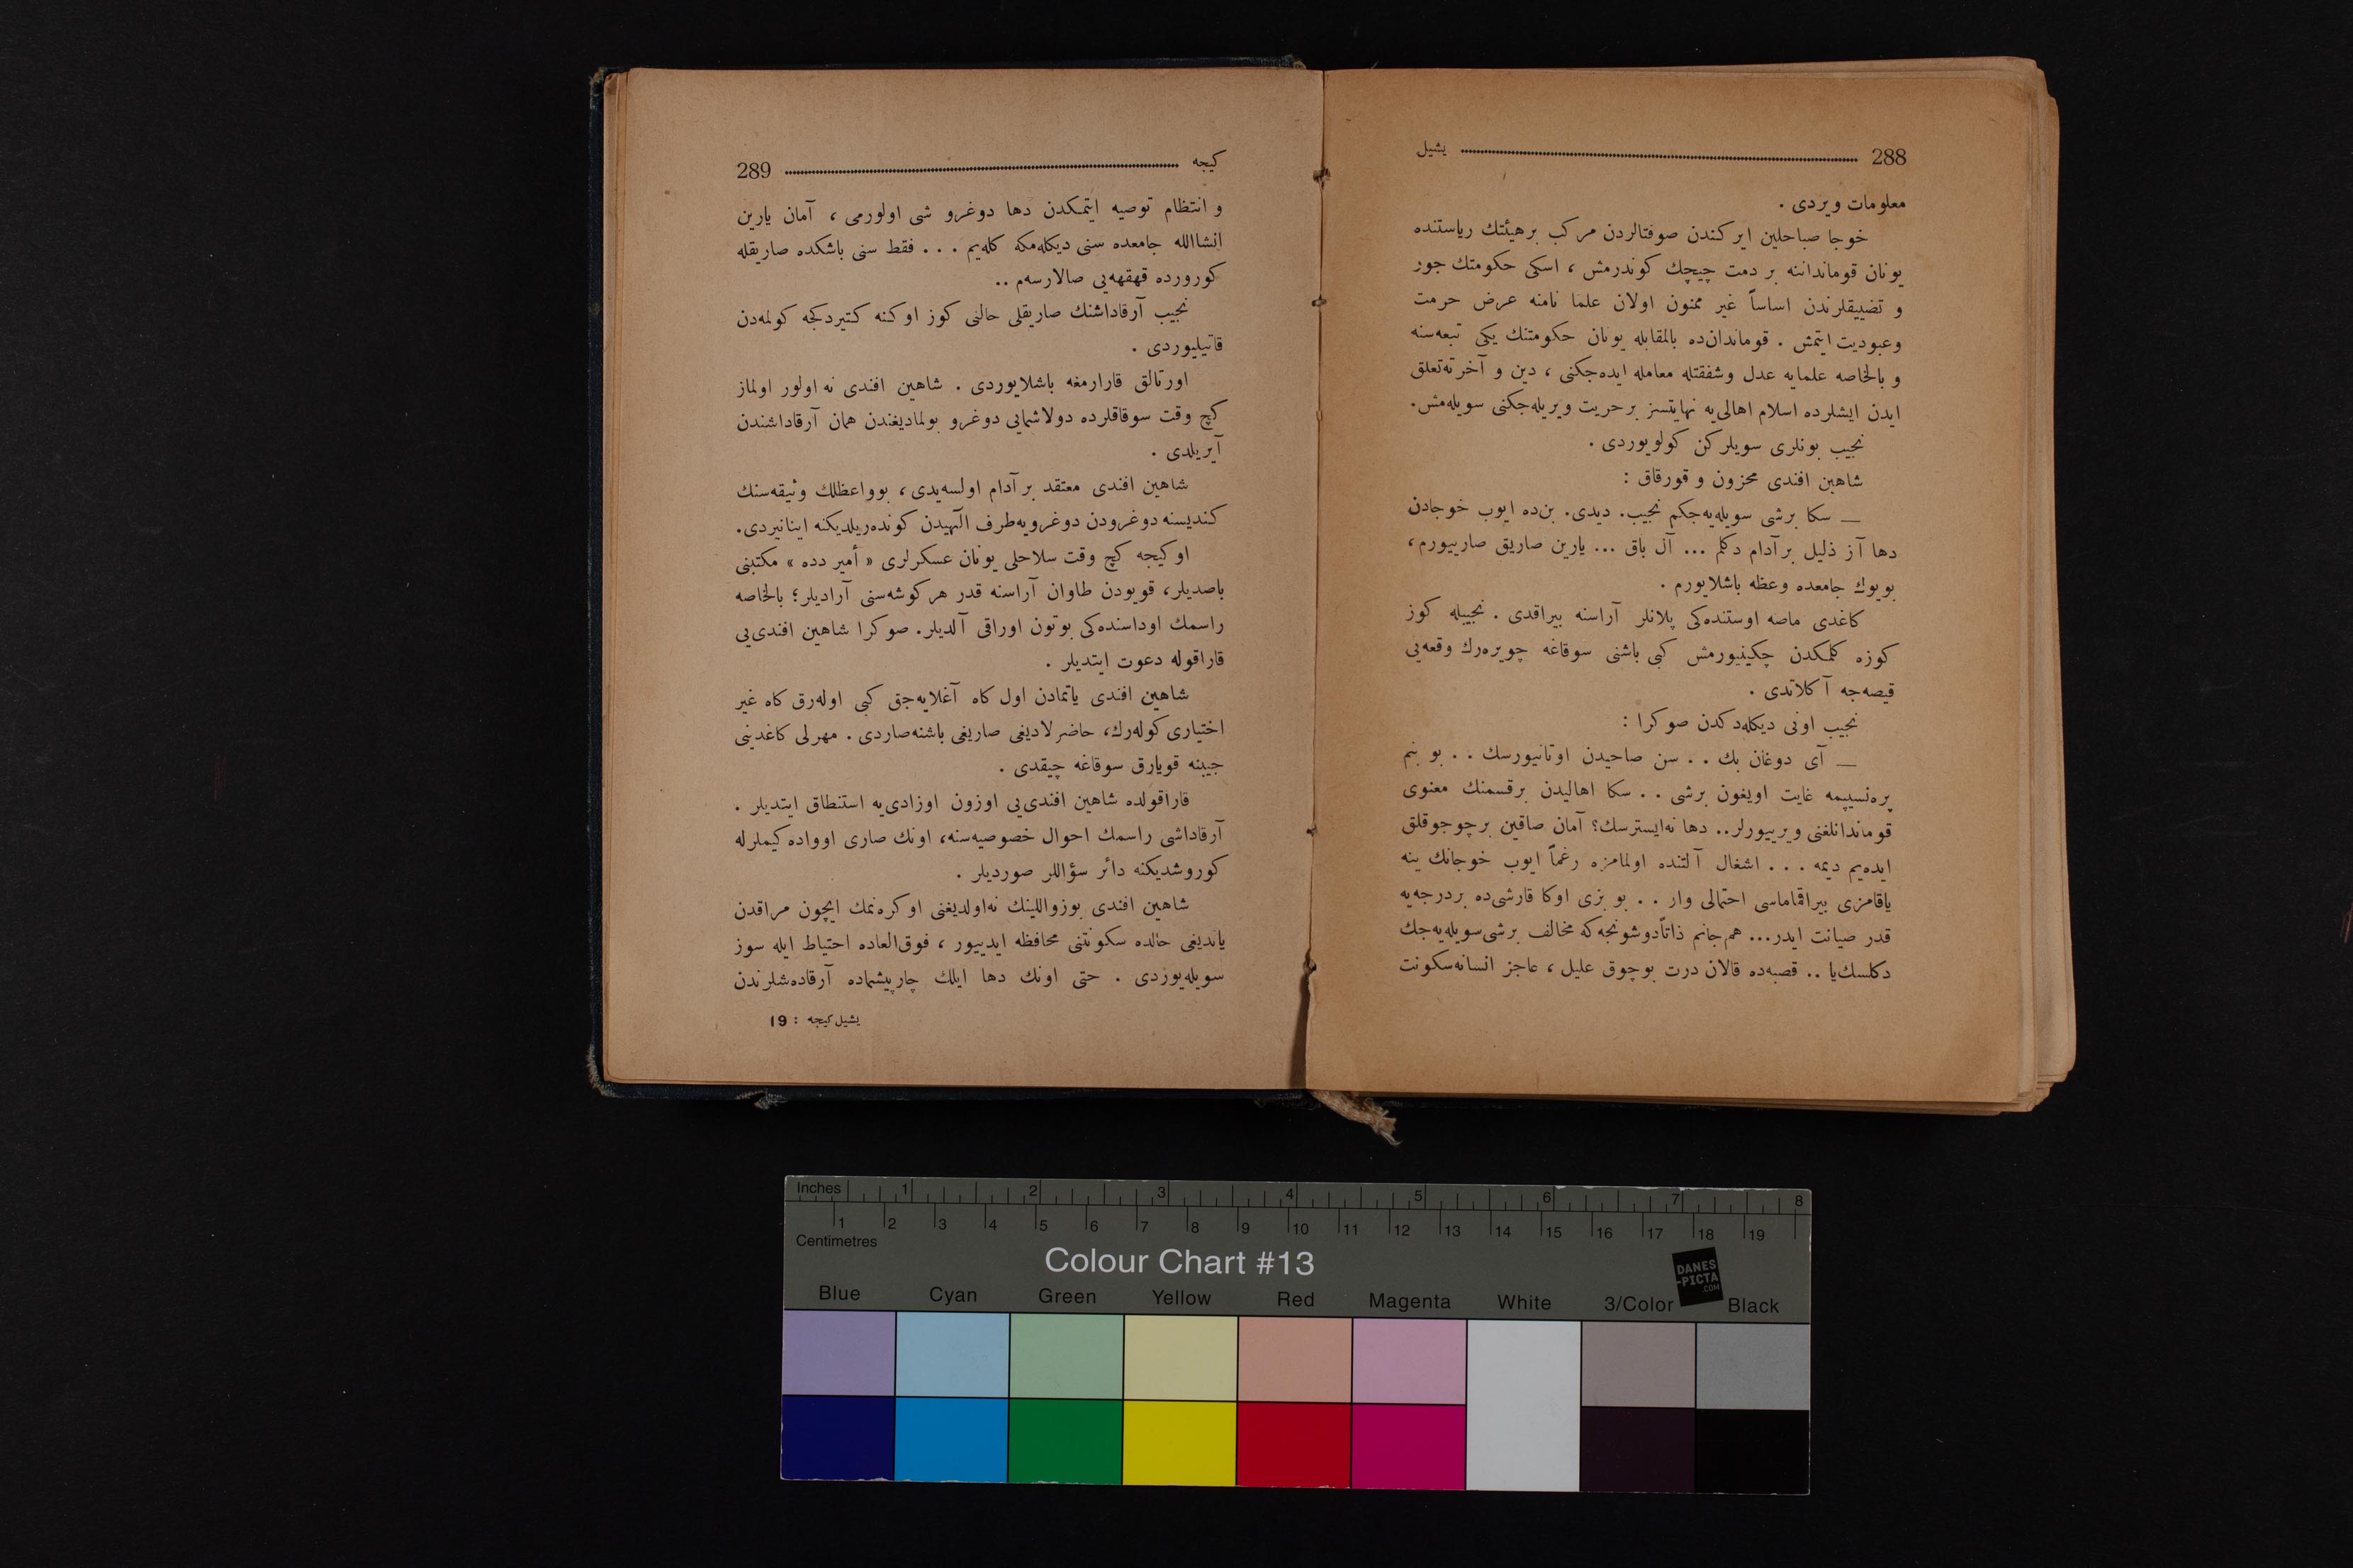 288 یشیل
معلومات ویردی .
خوجا صباحلین ایرکندن صوفتالردن مرکب برهیئتك ریاستنده
یونان قومانداننه بر دمت چیچك کوندرمش ، اسکی حکومتك جور
و تضییقلرندن اساساً غیر ممنون اولان علما نامنه عرض حرمت
وعبودیت ایتمش . قومانداندە بالمقابله یونان حکومتنك یکی تبعه‌سنه
و بالخاصه علمایه عدل وشفقتله معامله ایده‌جکنی ، دین و آخرته‌تعلق
ایدن ایشلرده اسلام اهالی‌یه نهایتسز برحریت ویریله‌جکنی سویله‌مش.
نجیب بونلری سویلرکن کولویوردی .
شاهین افندی محزون و قورقاق :
— سکا برشی سویله‌یه‌جکم نجیب. دیدی. بن‌ده ایوب خوجادن
دها آز ذلیل برآدام دکلم ... آل باق ... یارین صاریق صارییورم،
بویوك جامعده وعظه باشلایورم .
کاغدی ماصه اوستنده‌کی پلانلر آراسنه بیراقدی . نجیبله کوز
کوزه کلمکدن چکینیورمش کبی باشنی سوقاغه چویره‌رك وقعه‌یی
قیصه‌جه آکلاتدی .
نجیب اونی دیکله‌دکدن صوکرا :
— آی دوغان بك . . سن صاحیدن اوتانیورسك . . بو بنم
پره‌نسیپمه غایت اویغون برشی . . سکا اهالیدن برقسمنك معنوی
قوماندانلغنی ویرییورلر.. دها نه‌ایسترسك؟ آمان صاقین برچوجوقلق
ایده‌یم دیمه . . . اشغال آلتنده اولمامزه رغماً ایوب خوجانك ینه
یاقامزی بیراقماماسی احتمالی وار . . بو بزی اوکا قارشی‌ده بردرجه‌یه
قدر صیانت ایدر... هم‌جانم ذاتاًدوشونجه‌که مخالف برشی‌سویله‌یه‌جك
دکلسك‌یا .. قصبه‌ده قالان درت بوچوق علیل ، عاجز انسانه‌سکونت
کیجه 289
و انتظام توصیه ایتمکدن دها دوغرو شی اولورمی ، آمان یارین
انشاالله جامعده سنی دیکله‌مکه کله‌یم . . . فقط سنی باشکده صاریقله
کورورده قهقهه‌یی صالارسه‌م ..
نجیب آرقاداشنك صاریقلی حالنی کوز اوکنه کتیردکجه کولمه‌دن
قاتیلیوردی .
اورتالق قارارمغه باشلایوردی . شاهین افندی نه اولور اولماز
کچ وقت سوقاقلرده دولاشمایی دوغرو بولمادیغندن همان آرقاداشندن
آیریلدی .
شاهین افندی معتقد بر آدام اولسه‌یدی، بوواعظلك وثیقه‌سنك
کندیسنه دوغرودن دوغرویه‌طرف الٓهیدن کونده‌ریلدیکنه اینانیردی.
اوکیجه کچ وقت سلاحلی یونان عسکرلری « أمیر دده » مکتبنی
باصدیلر، قویودن طاوان آراسنه قدر هرکوشه‌سنی آرادیلر؛ بالخاصه
راسمك اوداسنده‌کی بوتون اوراقی آلدیلر. صوکرا شاهین افندی‌یی
قاراقوله دعوت ایتدیلر .
شاهین افندی یاتمادن اول کاه آغلایه‌جق کبی اوله‌رق کاه غیر
اختیاری کوله‌رك، حاضرلادیغی صاریغی باشنه‌صاردی . مهرلی کاغدینی
جیبنه قویارق سوقاغه چیقدی .
قاراقولده شاهین افندی‌یی اوزون اوزادی‌یه استنطاق ایتدیلر .
آرقاداشی راسمك احوال خصوصیه‌سنه، اونك صاری اوواده کیملرله
کوروشدیکنه دائر سؤاللر صوردیلر .
شاهین افندی بوزواللینك نه‌اولدیغنی اوکره‌نمك ایچون مراقدن
یاندیغی حالده سکونتنی محافظه ایدییور ، فوق‌العاده احتیاط ایله سوز
سویله‌یوردی . حتی اونك دها ایلك چارپیشماده آرقاده‌شلرندن
یشیل کیجه : 19
Inches 1 2 3 4 5 6 7 8
1 2 3 4 5 6 7 8 9 10 11 12 13 14 15 16 17 18 19
Centimetres
Colour Chart #13
DANES
-PICTA
.COM
Blue Cyan Green Yellow Red Magenta White 3/Color Black